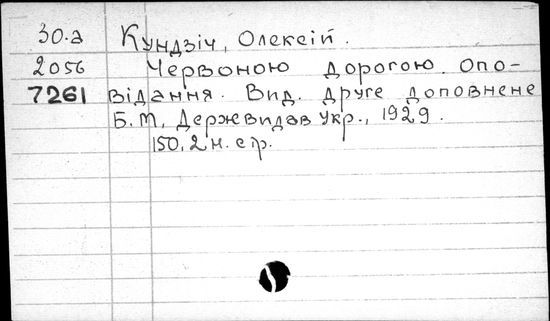 30.а Кундзіч, Олексій.
2056 Червоною дорогою. Опо-
7261 відання. Вид. друге доповнене
Б.м, Держвидав Укр., 1929.
150, 2 н. стр.